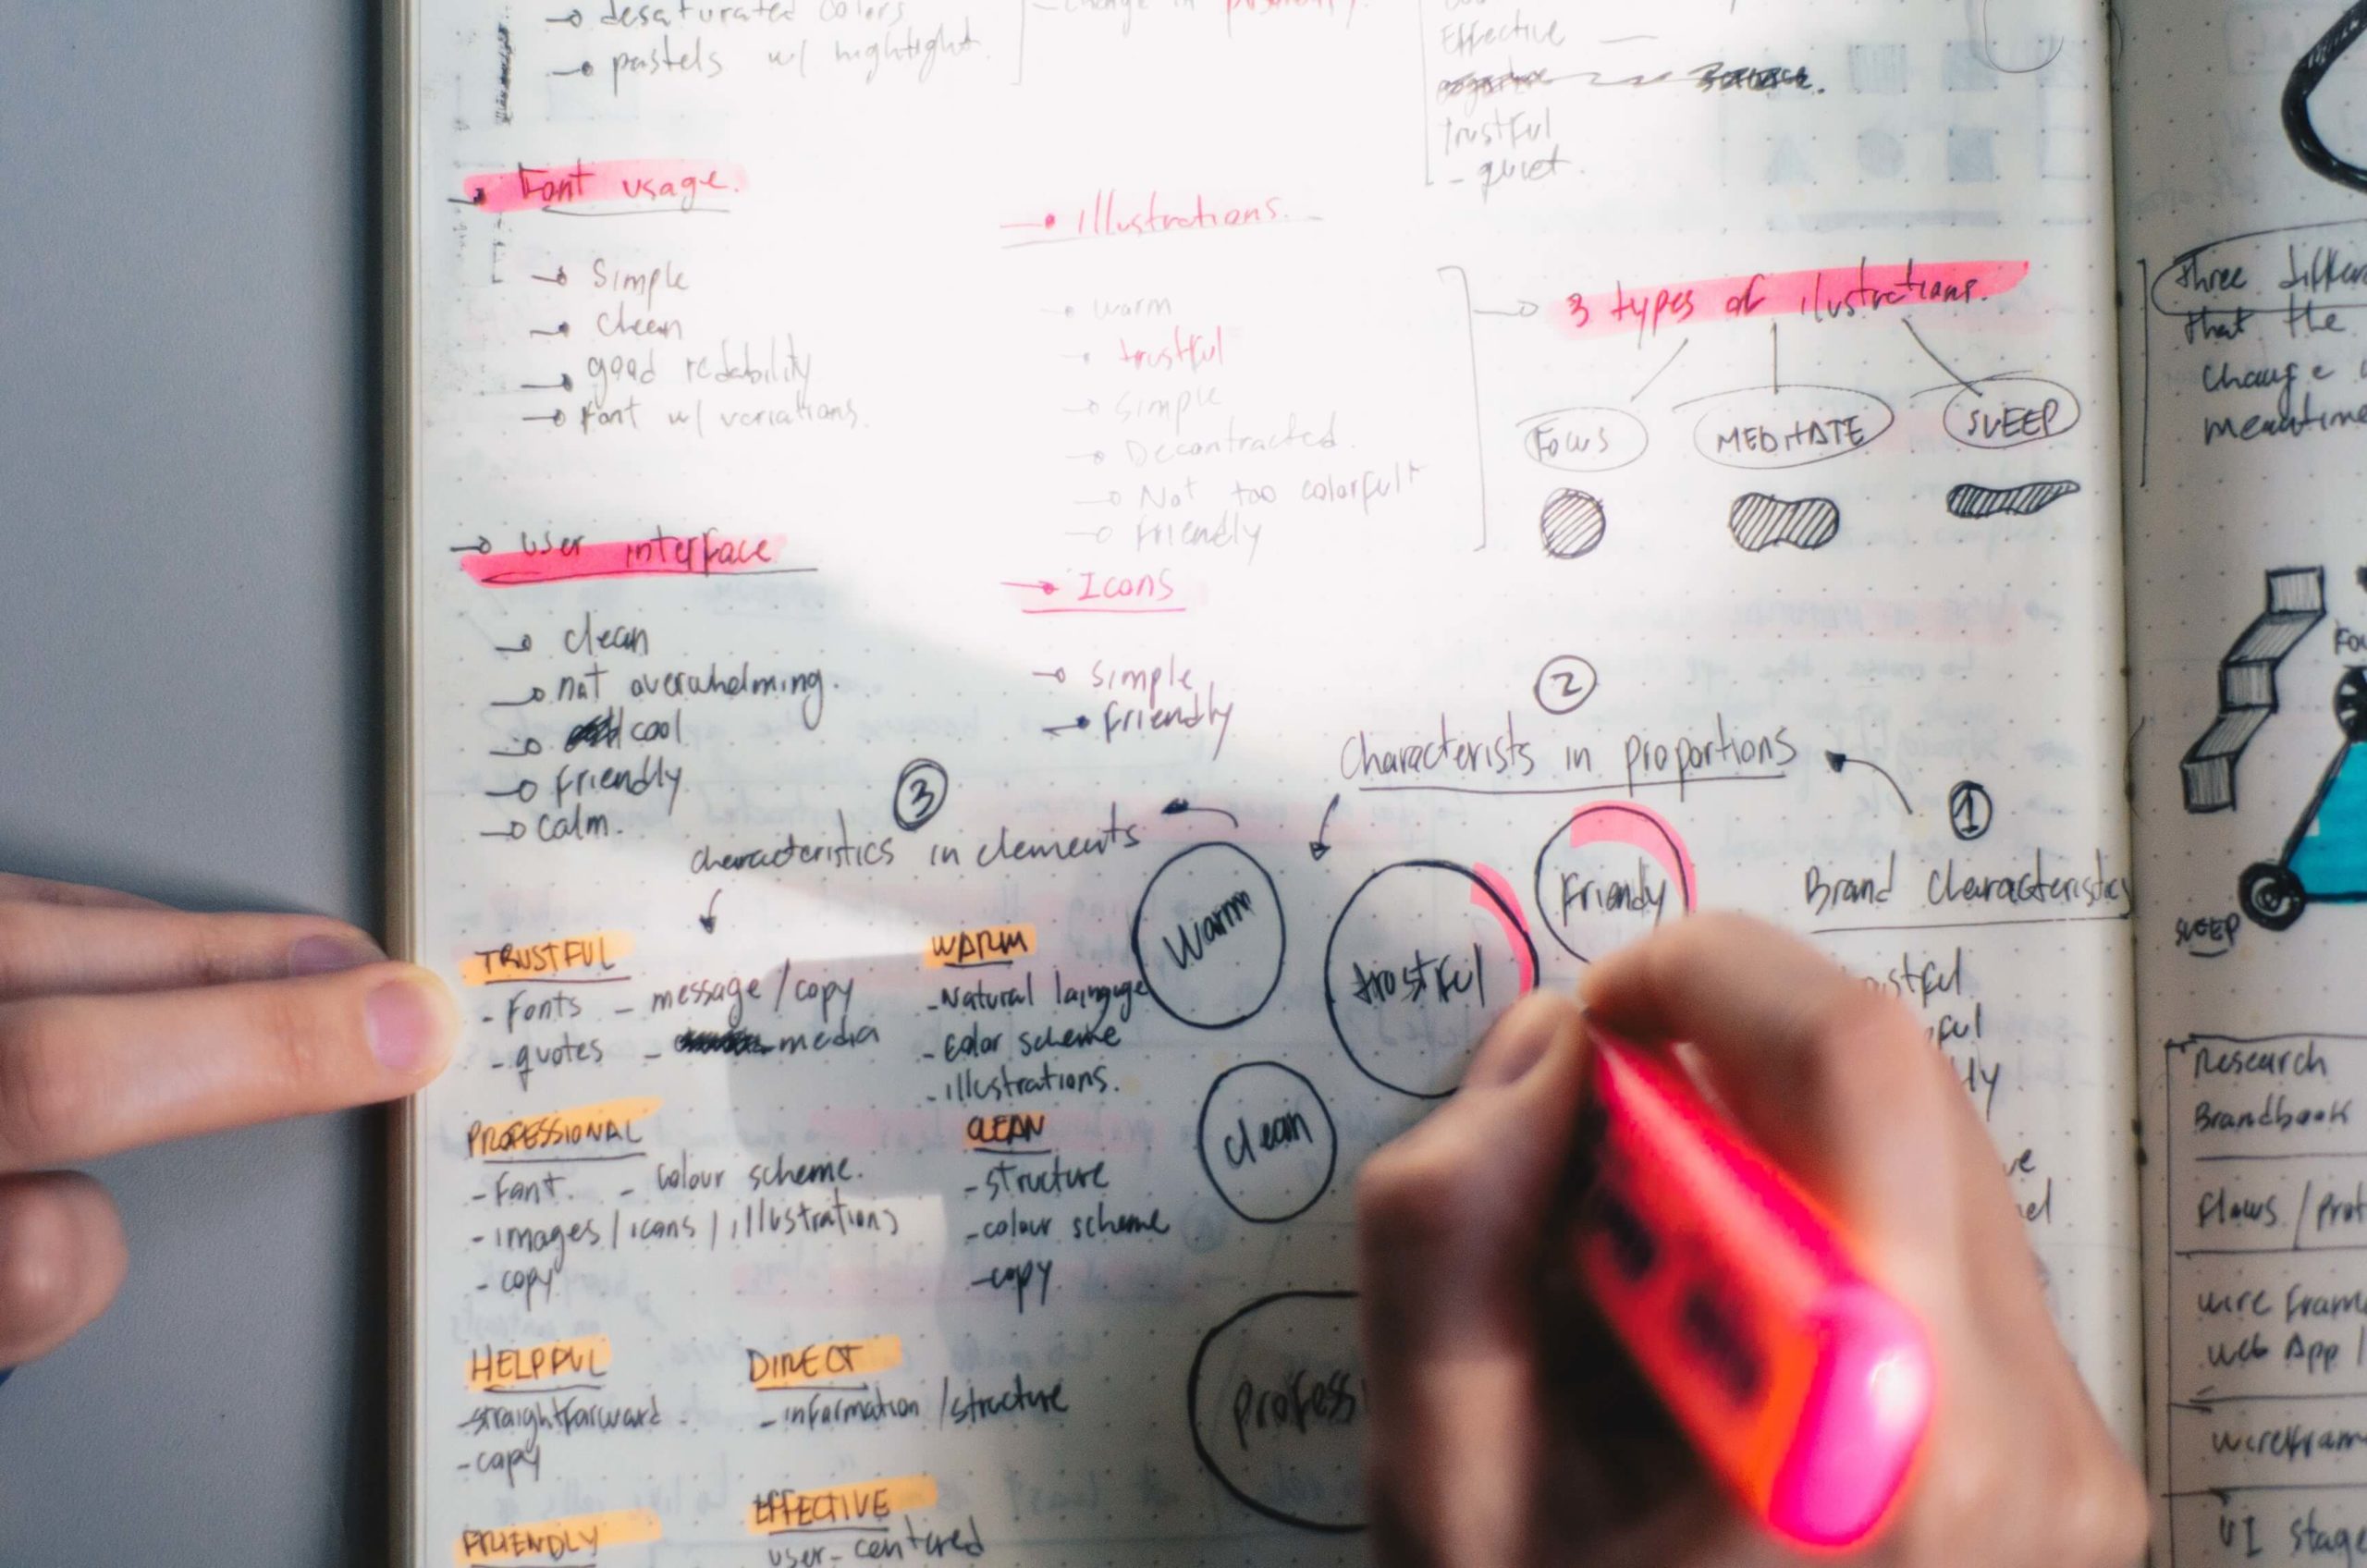 desaturated colors
pastels w/ hightlight.
change in
Effective
trustful
- quiet.
Font usage.
Simple
clean
good redability
Font w/ variations.
illustrations.
warm
trustful
Simple
Decontracted.
Not too colorful
Friendly
3 types of ilustrations.
Focus
MEDITATE
SLEEP
User interface
clean
not overwhelming.
cool
Friendly
calm.
Icons
Simple
Friendly
2
Characterists in proportions
1
Brand Characteristics
3
characteristics in elements
Warm
trustful
Friendly
clean
professi
TRUSTFUL
- Fonts - message / copy
- quotes - media
WARM
- Natural languge
- Color scheme
- illustrations.
PROFESSIONAL
- Font. - Colour scheme.
- images / icons / illustrations
- copy
CLEAN
- structure
- colour scheme
- copy
HELPFUL
- straightforward
- copy
DIRECT
- information / structure
FRIENDLY
EFFECTIVE
user-centered
three
that the
change
SLEEP
Research
Brandbook
Flows /
wire
web App /
UI